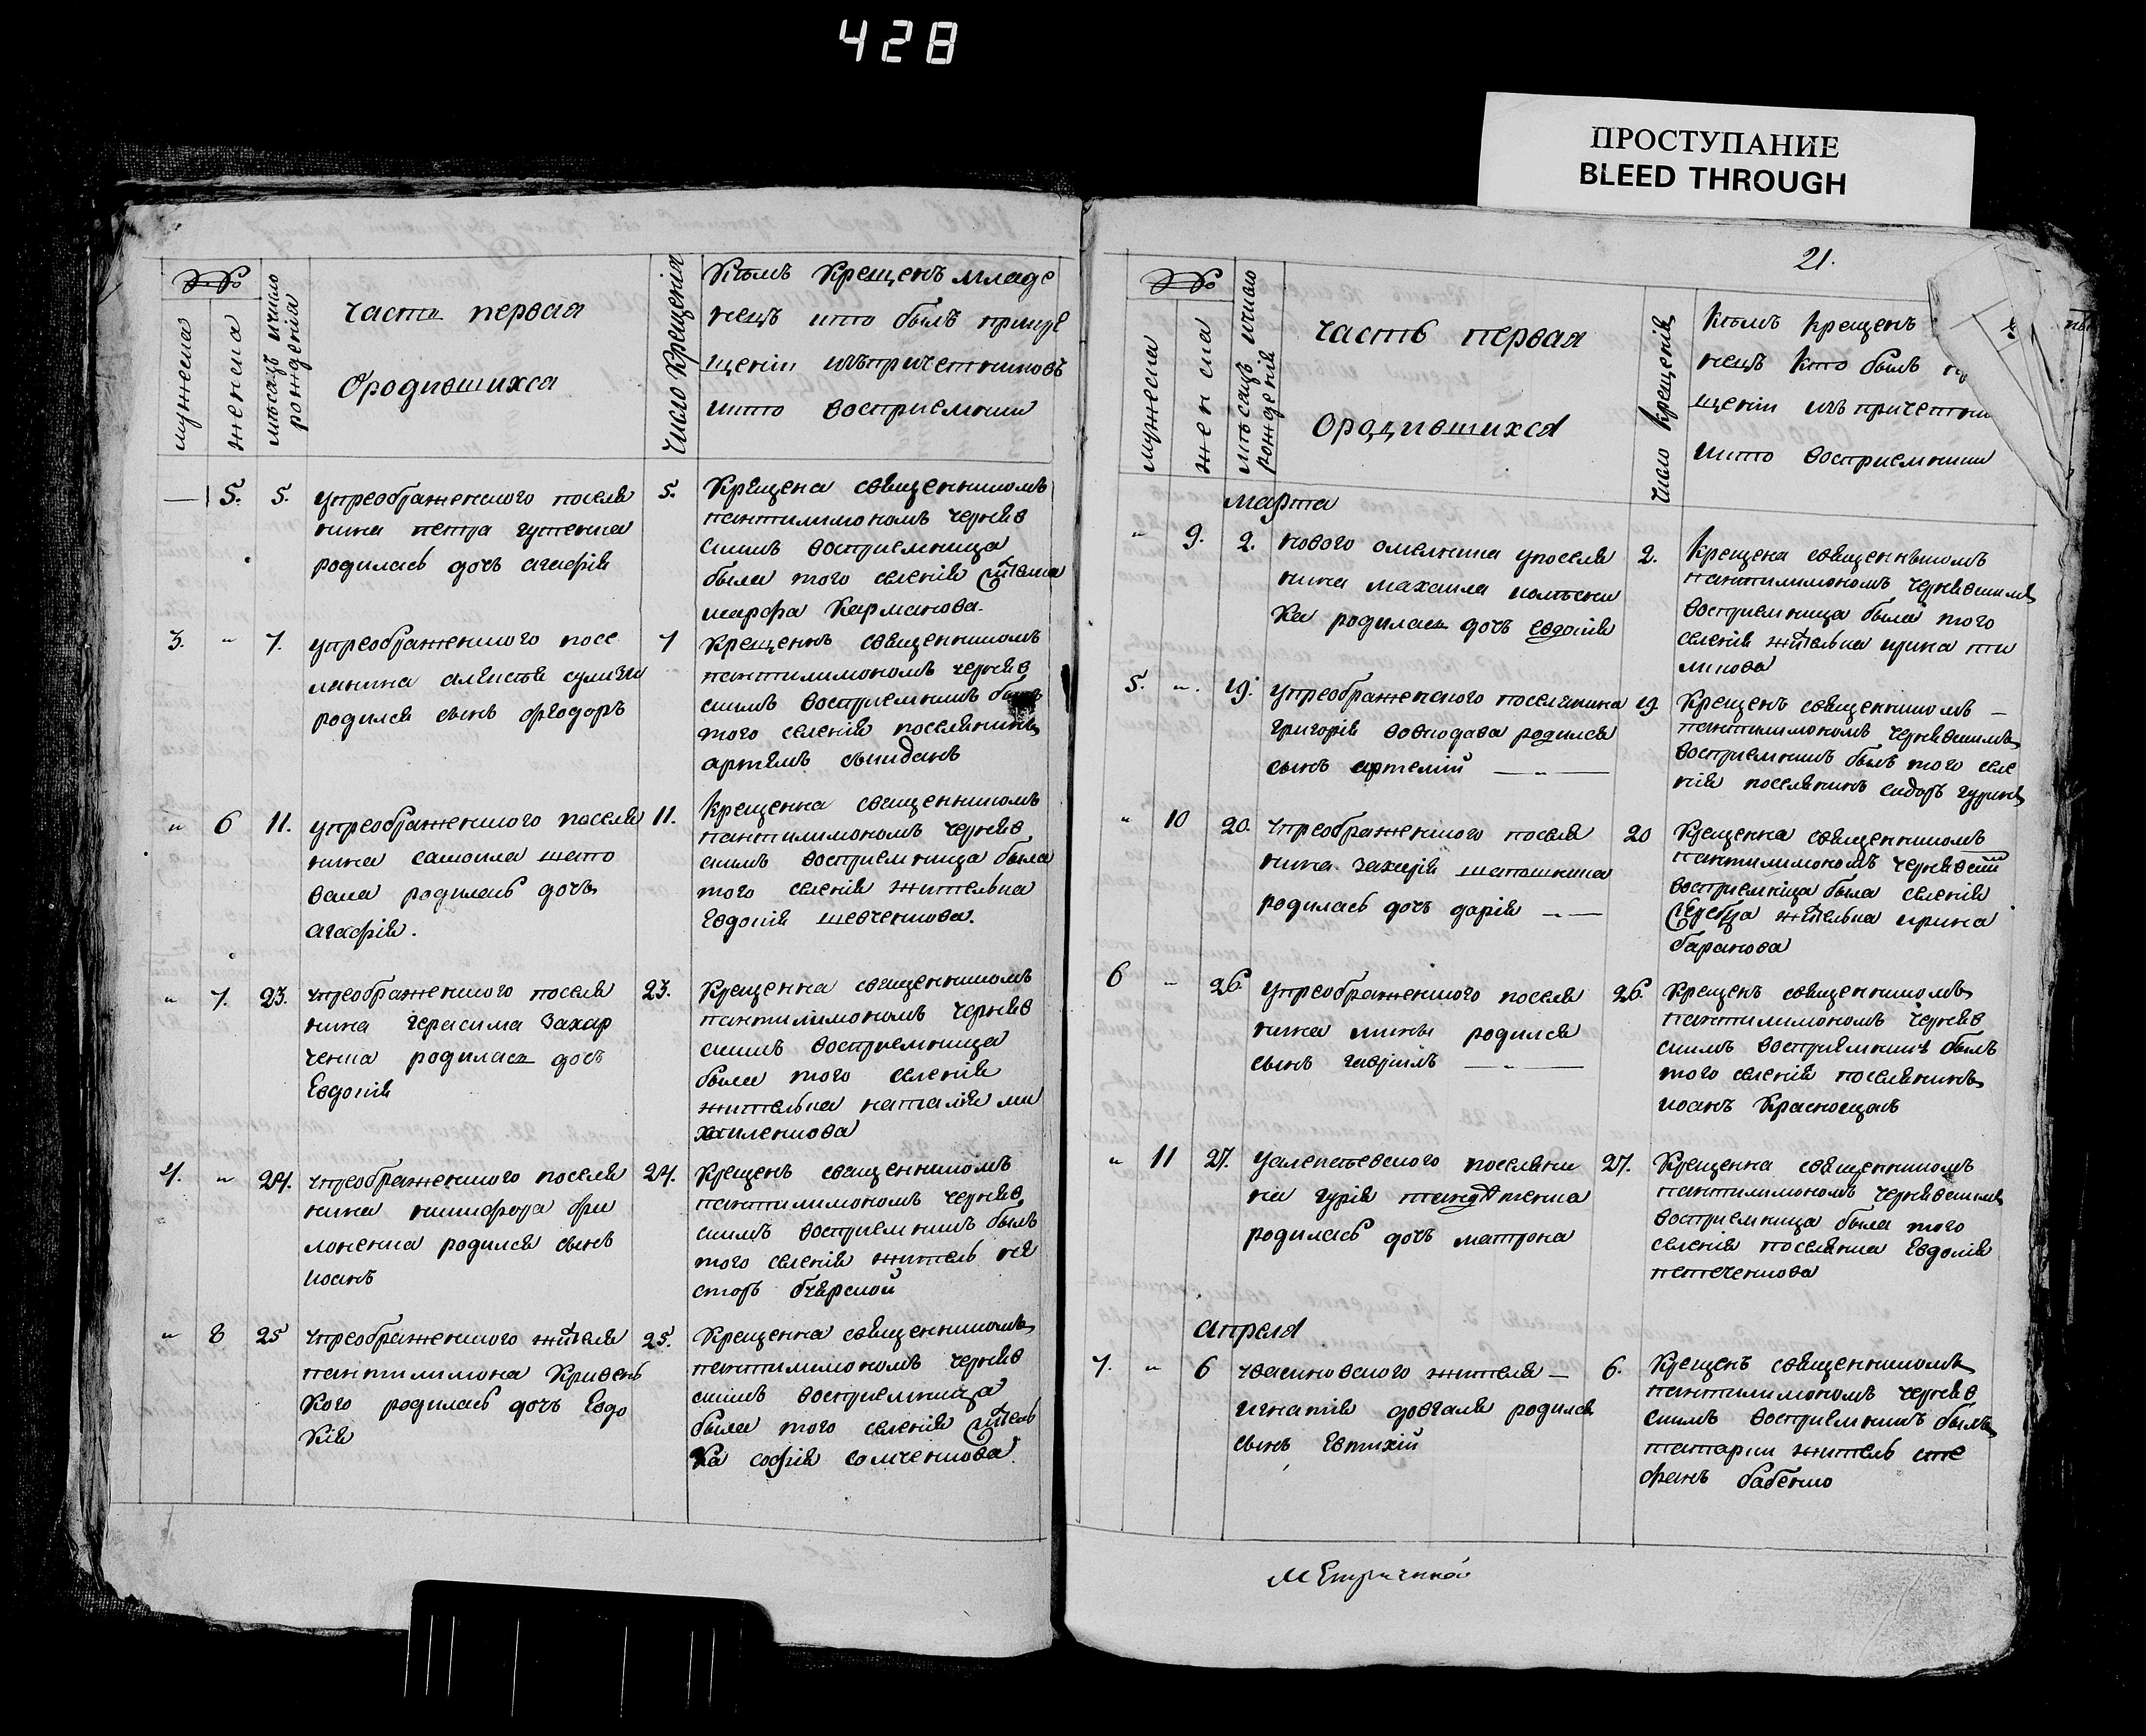 428
ПРОСТУПАНИЕ
BLEED THROUGH
№№
мужеска
женска
мѣсацъ ичисло
рожденія
часть первая
Ородившихса
число Крещенія
Кѣмъ Крещенъ младе
нецъ икто былъ прикре
щеніи изъпричетниковъ
икто восприемники
5.
5.
упреображенского поселя
нина петра гутенка
родилась дочь агафія
5.
Крещена священникомъ
пантилимономъ чернѣв
скимъ восприемница
была того селенія жителка
марфа Карманова.
3.
7.
упреображенского посе
лянина алексея
родился сынъ феодоръ
7
Крещеннъ священникомъ
пантилимономъ чернѣв
скимъ восприемникъ былъ
того селенія поселянинъ
артемъ
6
11.
упреображенского поселя
нина самоила шапо
вала родилась дочь
агафія.
11.
Крещенна священникомъ
пантилимономъ чернѣв
скимъ восприемница была
того селенія жителька
Евдокія шевченкова.
7.
23.
упреображенского поселя
нина герасима Захар
ченка родилась дочь
Евдокія
23.
Крещенна священникомъ
пантилимономъ чернѣв
скимъ восприемница
была того селенія
жителька наталія ми
хайленкова
4.
24.
упреображенского поселя
нина никифора фи
лоненка родился сынъ
иоанъ
24.
Крещенъ священникомъ
пантилимономъ чернѣв
скимъ восприемникъ былъ
того селенія житель не
сторъ
8
25
упреображенского жителя
пантилимона Кривень
Кого родилась дочь Евдо
Кія
25.
Крещенна священникомъ
пантилимономъ чернѣв
скимъ восприемница
была того селенія житель
Ка софія
21.
№№
мужеска
женска
мѣтьсацъ ичисло
рожденія
часть первая
Ородившихса
число Крещенія
Кѣмъ Крещенъ
нецъ Кто былъ
щеніи изъ причетни
икто восприемники
марта
9.
2.
нового омелника упоселя
нина махаила
Ка родилась дочь евдокія
2.
Крещена священникомъ
пантилимономъ чернѣвскимъ
восприемница была того
селенія жителька ирина пи
липова
5.
19.
упреображенского поселянина
григорія воеводава родился
сынъ артемій
19
Крещенъ священникомъ
пантилимономъ чернѣвскимъ
восприемникъ былъ того селе
нія поселянинъ сидоръ гуринъ
10
20.
упреображенского поселя
нина захарія шапошника
родилась дочь дарія
20
Крещенна священникомъ
пантилимономъ чернѣвски
восприемница была селенія
серебра жителька ирина
баранова
6
26.
упреображенского поселя
нина мины родился
сынъ гавріилъ
26.
Крещенъ священникомъ
пантилимономъ чернѣв
скимъ восприемникъ былъ
того селенія поселянинъ
иоанъ Краснощокъ
11
27.
уалексеевского поселяни
на гурія
родилась дочь матрона
27.
Крещенна священникомъ
пантилимономъ чернѣвскимъ
восприемница была того
селенія поселянка Евдокія
апреля
7.
6
чвасиковского жителя
игнатія довгаля родился
сынъ Евтихій
6.
Крещенъ священникомъ
пантилимономъ чернѣв
скимъ восприемникъ былъ
татарки житель сте
фанъ бабенко